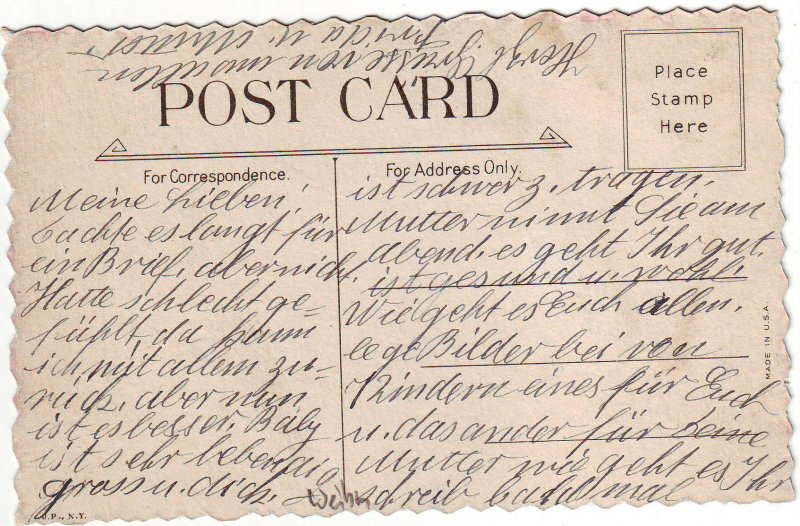 Herzl. Grüsse von uns allen
Frida u.
POST CARD
Place
Stamp
Here
For Correspondence.
For Address Only.
Meine Lieben!
Dachte es langt für
ein Brief, aber nich.
Hatte schlecht ge-
fühlt, da kam
ich mit allem zu-
rück, aber nun
ist es besser. Baby
ist sehr lebendig
gross u. dick.
ist schwer z. tragen.
Mutter nimt Sie am
abend. es geht Ihr gut.
ist gesund u. wohl.
Wie geht es Euch allen.
lege Bilder bei von
Kindern eines für Euch
u. das ander für Deine
Mutter wie geht es Ihr
schreib bald mal
MADE IN U.S.A.
J.P., N-Y.